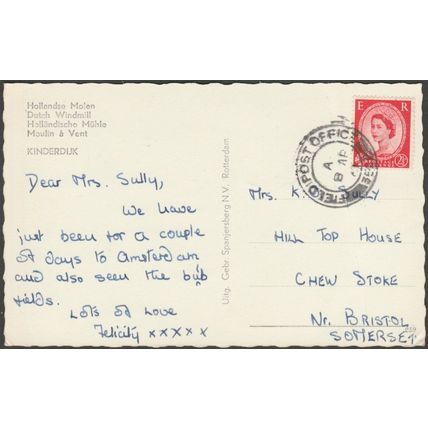 Hollandse Molen
Dutch Windmill
Holländische Mühle
Moulin à Vent
KINDERDIJK
Dear Mrs. Sully,
We have
just been for a couple
of days to Amsterdam
and also seen the bulb
fields.
Lots of love
Felicity xxxxx
Uitg. Gebr. Spanjersberg N.V. Rotterdam
E R
2½
FIELD POST OFFICE
A
8 AP
Mrs. K. Sully
HILL TOP HOUSE
CHEW STOKE
Nr. BRISTOL
SOMERSET